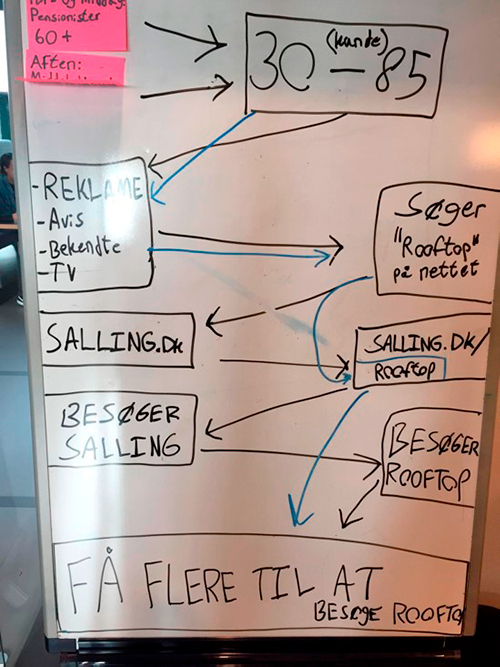 Pensionister
60+
Aften:
(kunde)
30 - 85
- REKLAME
- Avis
- Bekendte
- TV
Søger
"Rooftop"
på nettet
SALLING.DK
SALLING.DK/
Rooftop
BESØGER
SALLING
BESØGER
ROOFTOP
FÅ FLERE TIL AT
BESØGE ROOFTOP